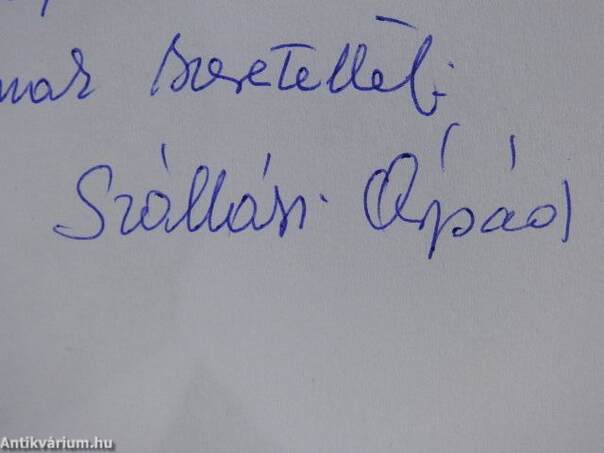 szeretettel:
Szállási Árpád
Antikvárium.hu